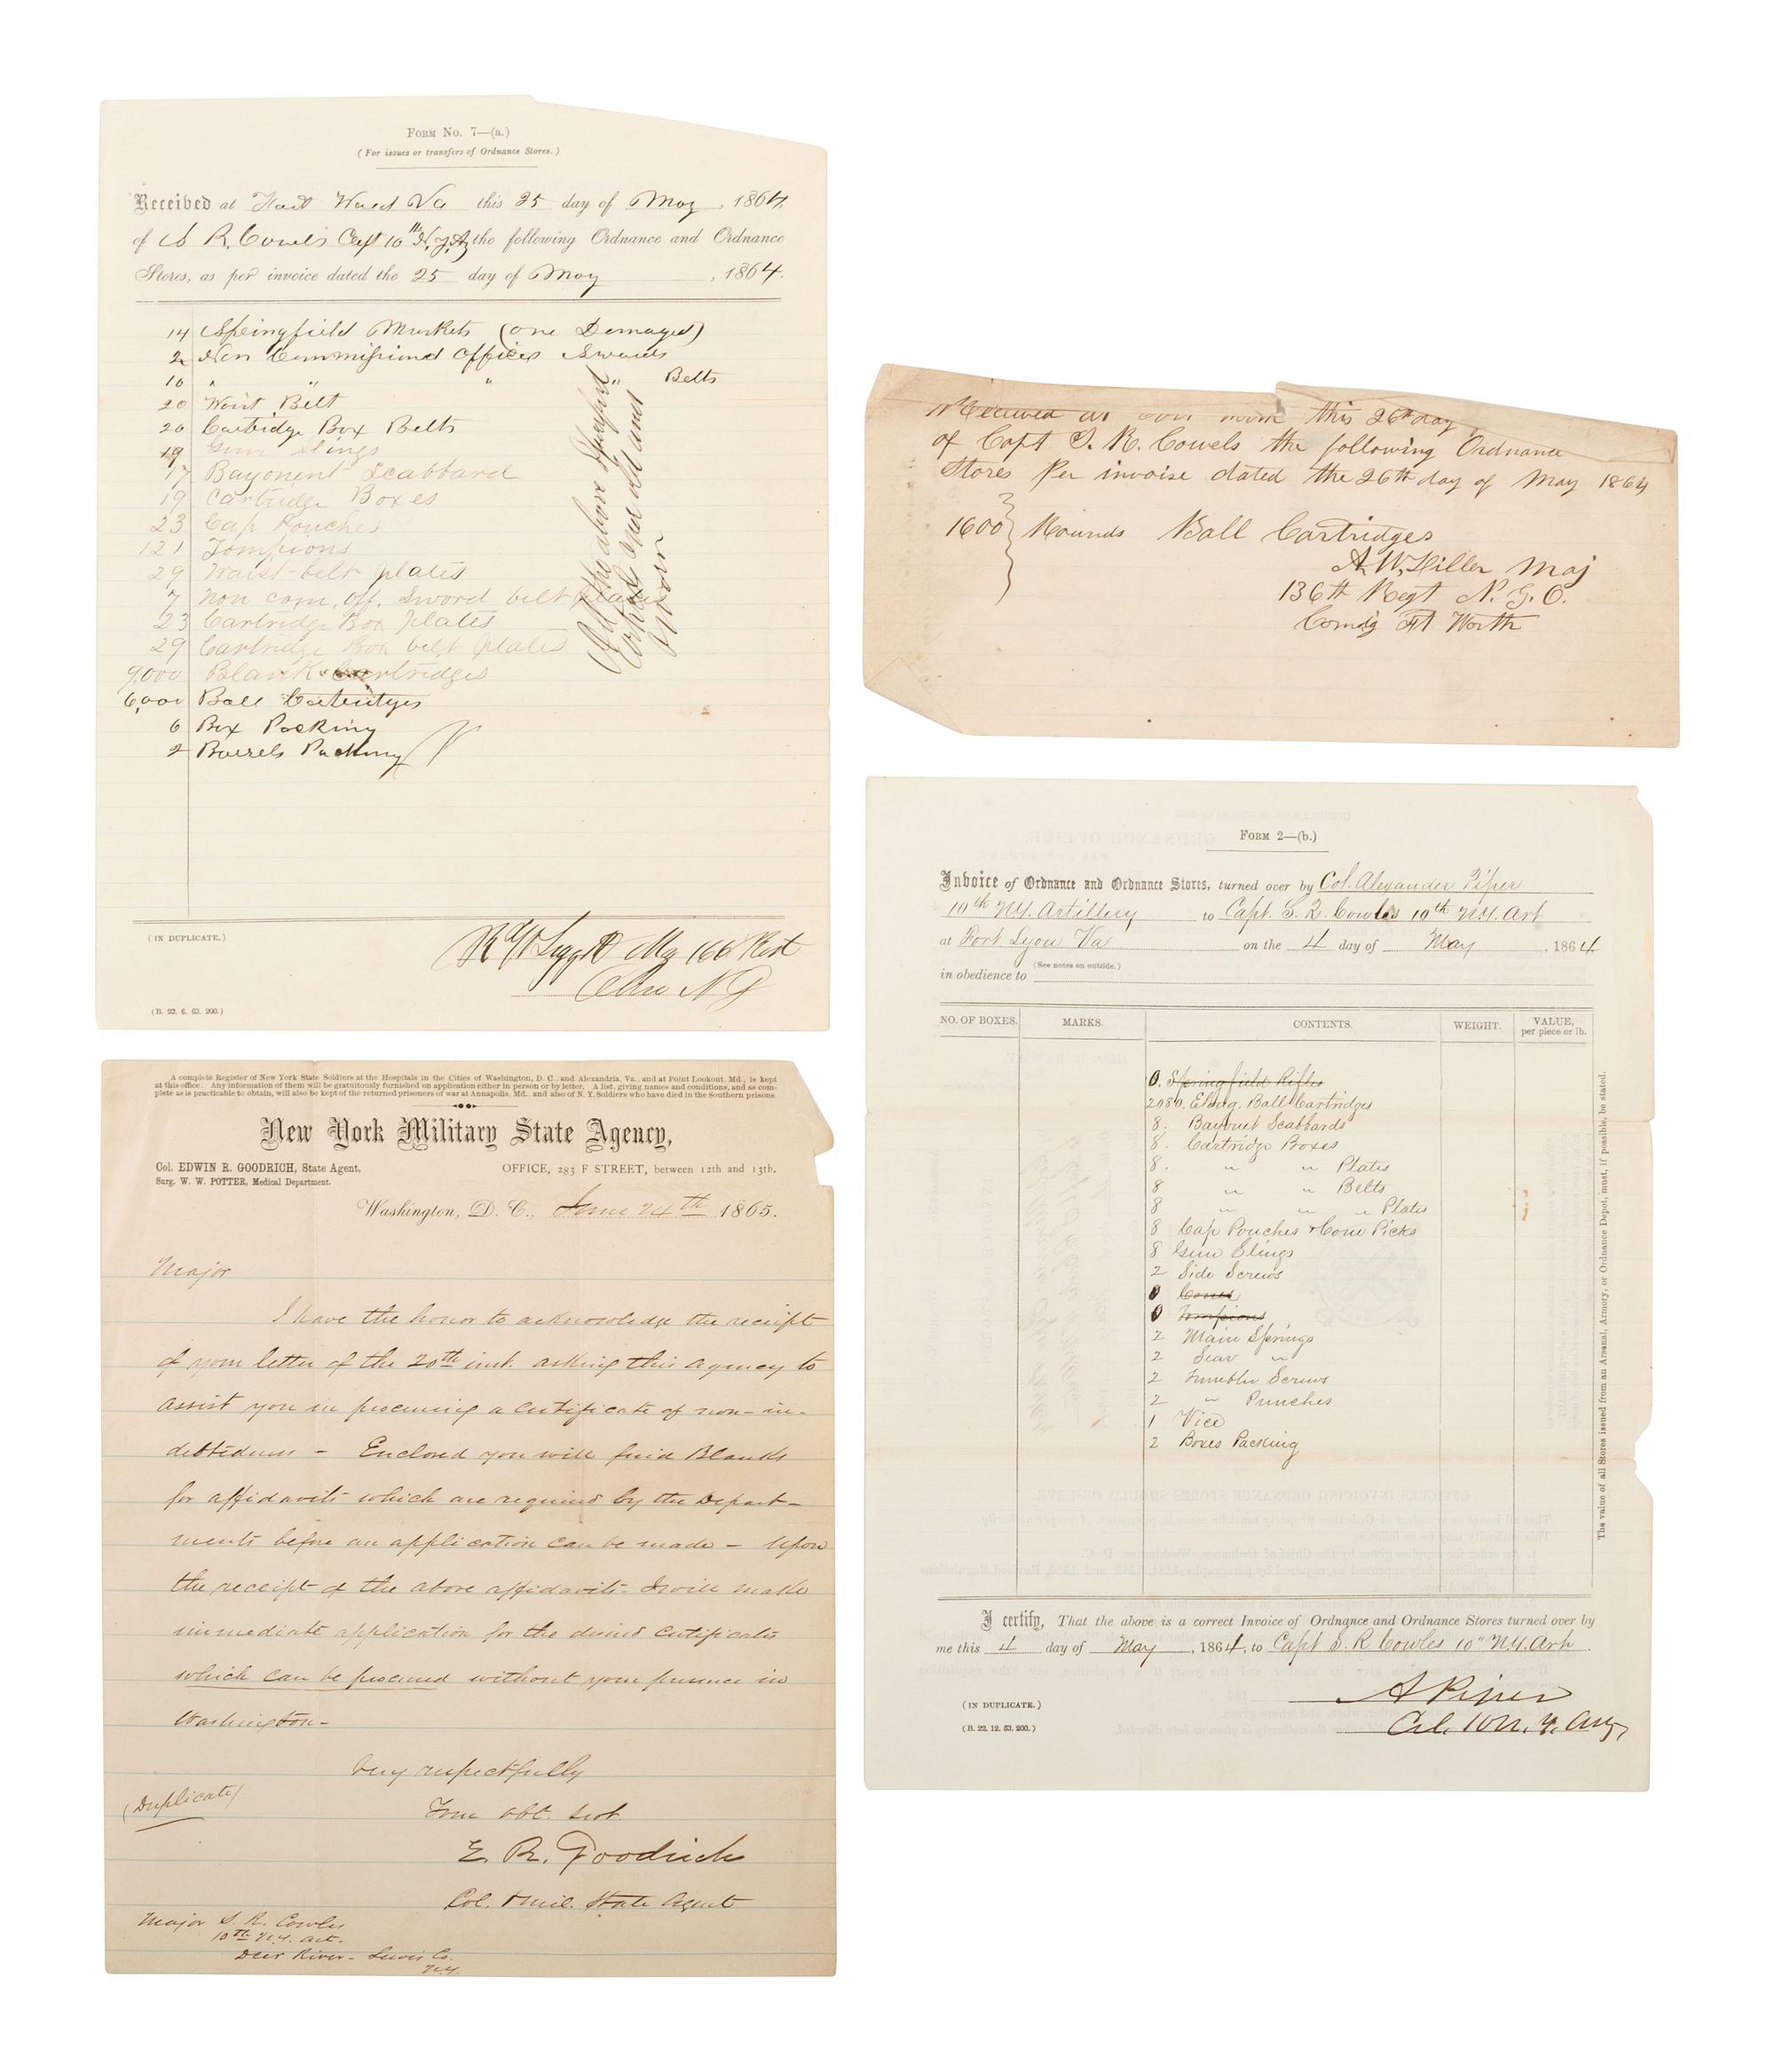 Form No. 7—(a.)
(For issues or transfers of Ordnance Stores.)
Received at Fort Ward Va this 25 day of May, 1864,
of S R. Cowels Capt 10th N.Y.A the following Ordnance and Ordnance
Stores, as per invoice dated the 25 day of May, 1864.
14 Springfield Muskets (one Damaged)
2 Non Commissiond Offices Swords
10 " " " " Belts
20 Waist Belt
20 Cartridge Box Belts
19 Gun Slings
17 Bayonent Scabbard
19 Cartridge Boxes
23 Cap Pouches
121 Tompions
29 Waist-belt plates
7 Non com. off. Sword belt plates
23 Cartridge Box plates
29 Cartridge Box belt plates
9,000 Blank Cartridges
6,000 Ball Cartridges
6 Box Packing
2 Barrels Packing
All the above
are old and
worn
(IN DUPLICATE.)
Maj 166 Rgt
Ohio N G
(B. 23. 6. 63. 200.)
Received at this 26th day
of Capt S. R. Cowels the following Ordnance
Stores Per invoise dated the 26th day of May 1864
1600 Rounds Ball Cartridges
A. W. Hiller Maj
136th Regt N. G. O.
Comdg Ft Worth
Form 2—(b.)
Invoice of Ordnance and Ordnance Stores, turned over by Col. Alexander Piper
10th N.Y. Artillery to Capt. S. R. Cowles 10th N.Y. Art
at Fort Lyon Va on the 4 day of May, 1864
(See notes on outside.)
in obedience to
NO. OF BOXES. MARKS. CONTENTS. WEIGHT. VALUE, per piece or lb.
0. Springfield Rifles
2080. Elong. Ball Cartridges
8. Bayonet Scabbards
8. Cartridge Boxes
8. " " Plates
8 " " Belts
8 " " " Plates
8 Cap Pouches & Cone Picks
8 Gun Slings
2 Side Screws
0 Cones
0 Tompions
2 Main Springs
2 Sear "
2 Tumbler Screws
2 " Punches
1 Vice
2 Boxes Packing
The value of all Stores issued from an Arsenal, Armory, or Ordnance Depot, must, if possible, be stated.
I certify, That the above is a correct Invoice of Ordnance and Ordnance Stores turned over by
me this 4 day of May, 1864, to Capt S. R Cowles 10" N.Y. Art.
(IN DUPLICATE.)
(B. 22. 12. 63. 200.)
A Piper
Col. 10 N. Y. Arty
A complete Register of New York State Soldiers at the Hospitals in the Cities of Washington, D. C., and Alexandria, Va., and at Point Lookout, Md., is kept
at this office. Any information of them will be gratuitously furnished on application either in person or by letter. A list, giving names and conditions, and as com-
plete as is practicable to obtain, will also be kept of the returned prisoners of war at Annapolis, Md., and also of N. Y. Soldiers who have died in the Southern prisons.
New York Military State Agency,
Col. EDWIN R. GOODRICH, State Agent,
Surg. W. W. POTTER, Medical Department.
OFFICE, 283 F STREET, between 12th and 13th.
Washington, D. C., June 24th 1865.
Major
I have the honor to acknowledge the receipt
of your letter of the 20th inst. asking this agency to
assist you in procuring a certificate of non-in-
debtedness - Enclosed you will find Blanks
for affidavits which are required by the Depart-
ments before an application can be made - Upon
the receipt of the above affidavits I will make
immediate application for the desired Certificates
which can be procured without your presence in
Washington-
Very respectfully
Your obt. Svt.
(Duplicate)
E. R. Goodrich
Col. & Mil. State Agent
Major S. R. Cowles
10th N.Y. Art.
Deer River - Lewis Co.
N.Y.